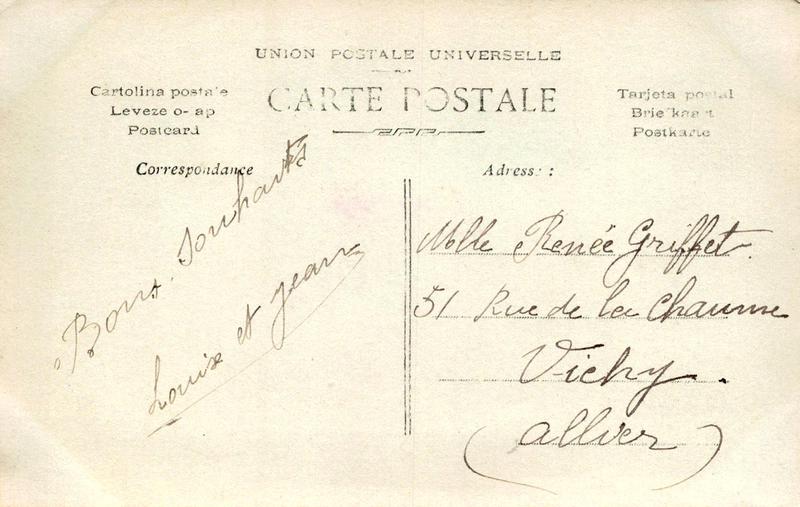 UNION POSTALE UNIVERSELLE
CARTE POSTALE
Cartolina postale
Leveze o- ap
Postcard
Tarjeta postal
Briefkaart
Postkarte
Correspondance
Adresse :
Bons Souhaits
Louise et Jean
Mlle Renée Griffet
51 Rue de la Chaume
Vichy.
(Allier)